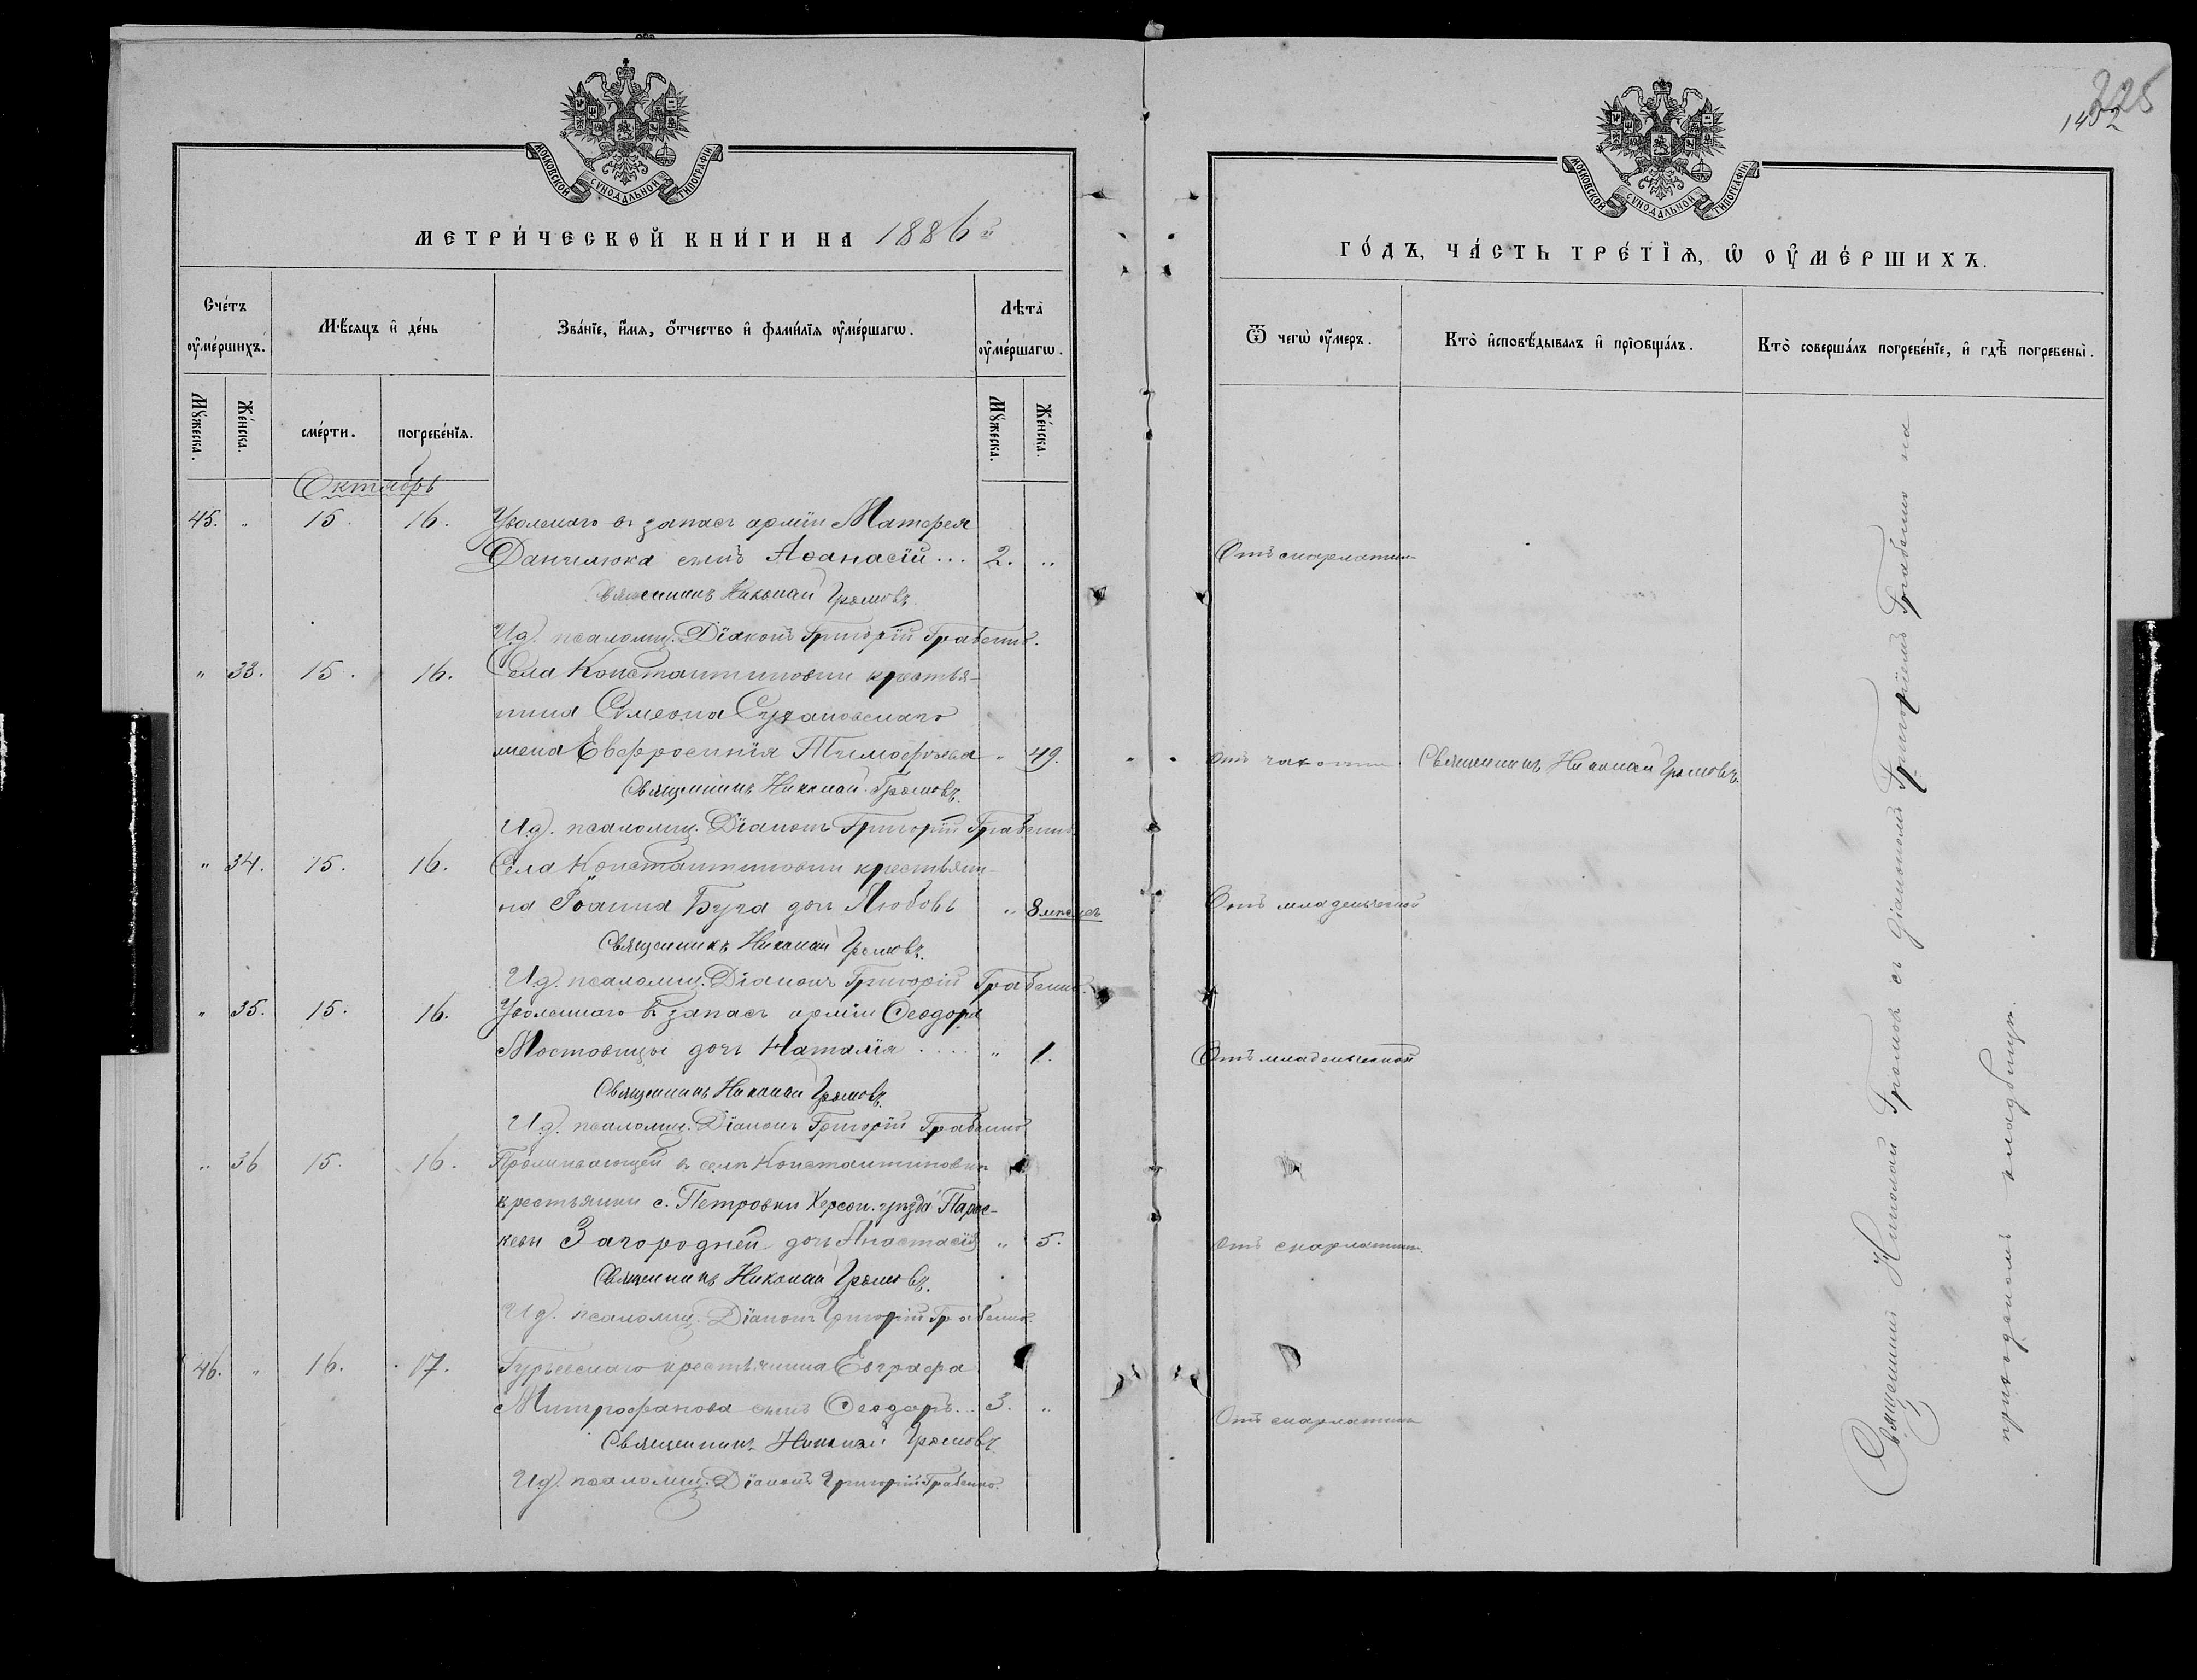 МОСКОВСКОЙ СУНОДАЛЬНОЙ ТИПОГРАФІИ
МЕТРИ́ЧЕСКОЙ КНИ́ГИ НА 1886й
Сче́тъ оу҆ме́ршихъ.
Мѣ́сяцъ и҆ де́нь
Зва́нїе, и҆́мя, ѻ҆́тчество и҆ фами́лїя оу҆ме́ршагѡ.
Лѣта̀ оу҆ме́ршагѡ.
Мꙋ́жеска.
Же́нска.
сме́рти.
погребе́нїя.
Мꙋ́жеска.
Же́нска.
Октябрь
45. " 15. 16. Уволенаго въ запасъ арміи Матфея
Данилюка сынъ Аѳанасій... 2. "
Священникъ Николай Громовъ.
И.д. псаломщ. Діаконъ Григорій Грабенко.
" 33. 15. 16. Села Константиновки крестья-
нина Симеона Сухановскаго
жена Евфросинія Тимофѣева " 49.
Священникъ Николай Громовъ.
И.д. псаломщ. Діаконъ Григорій Грабенко.
" 34. 15. 16. Села Константиновки крестьяни-
на Іоанна Буга дочь Любовь " 8 мѣсяцъ
Священникъ Николай Громовъ.
И.д. псаломщ. Діаконъ Григорій Грабенко.
" 35. 15. 16. Уволеннаго въ запасъ арміи Ѳеодора
Мостовицы дочь Наталія .... " 1.
Священникъ Николай Громовъ.
И.д. псаломщ. Діаконъ Григорій Грабенко
" 36 15. 16. Проживающей в селѣ Константиновкѣ
крестьянки с. Петровки Херсон. уѣзда Парас-
кевы Загородней дочь Анастасія " 5.
Священникъ Николай Громовъ.
И.д. псаломщ. Діаконъ Григорій Грабенко.
46. " 16. 17. Гурьевскаго крестьянина Евграфа
Митрофанова сынъ Ѳеодоръ.. 3. "
Священникъ Николай Громовъ
И.д. псаломщ. Діаконъ Григорій Грабенко.
225
1452
МОСКОВСКОЙ СУНОДАЛЬНОЙ ТИПОГРАФІИ
ГО́ДЪ, ЧА́СТЬ ТРЕ́ТЇѦ, Ѡ҆ ОУ҆МЕ́РШИХЪ.
Ѿ чегѡ̀ оу҆́меръ.
Кто̀ и҆сповѣ́дывалъ и҆ прїобща́лъ.
Кто̀ соверша́лъ погребе́нїе, и҆ гдѣ̀ погребены̀.
Отъ скарлатин
Отъ чахотки Священникъ Николай Громовъ.
Отъ младенческой
Отъ младенческой
Отъ скарлатин.
Отъ скарлатин
Священникъ Николай Громовъ съ діакономъ Григоріемъ Грабенко на
приходскомъ кладбищѣ.